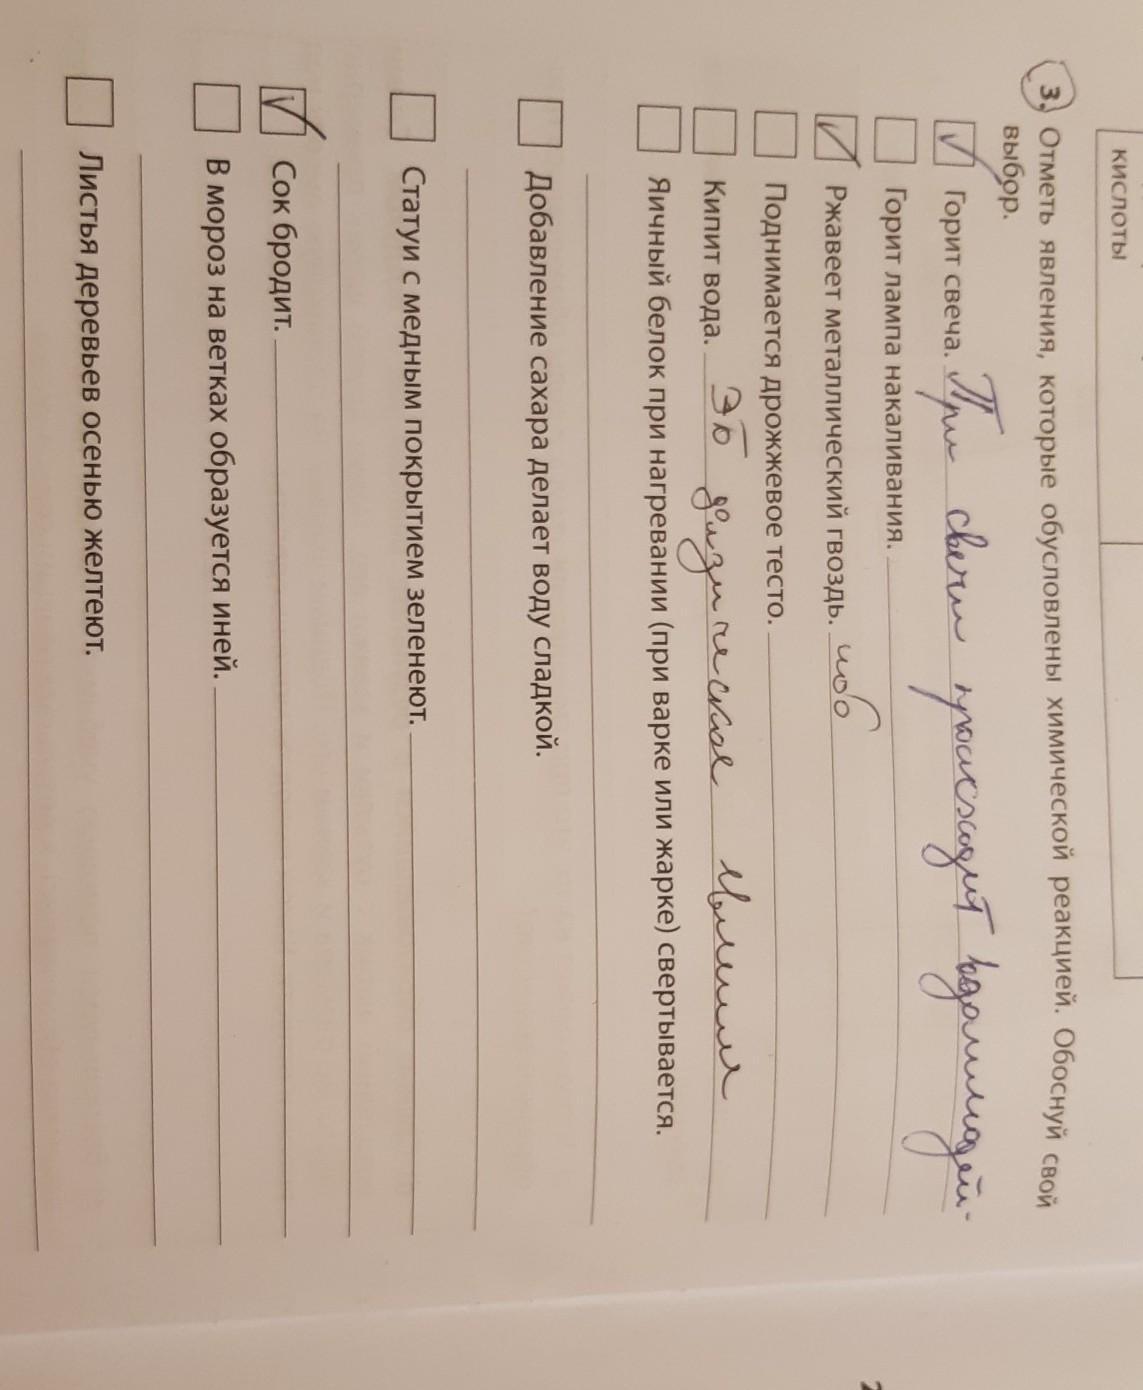 кислоты
3. Отметь явления, которые обусловлены химической реакцией. Обоснуй свой
выбор.
Горит свеча. При свечи происходит
Горит лампа накаливания.
Ржавеет металлический гвоздь.
Поднимается дрожжевое тесто.
Кипит вода. Это физическое
Яичный белок при нагревании (при варке или жарке) свертывается.
Добавление сахара делает воду сладкой.
Статуи с медным покрытием зеленеют.
Сок бродит.
В мороз на ветках образуется иней.
Листья деревьев осенью желтеют.